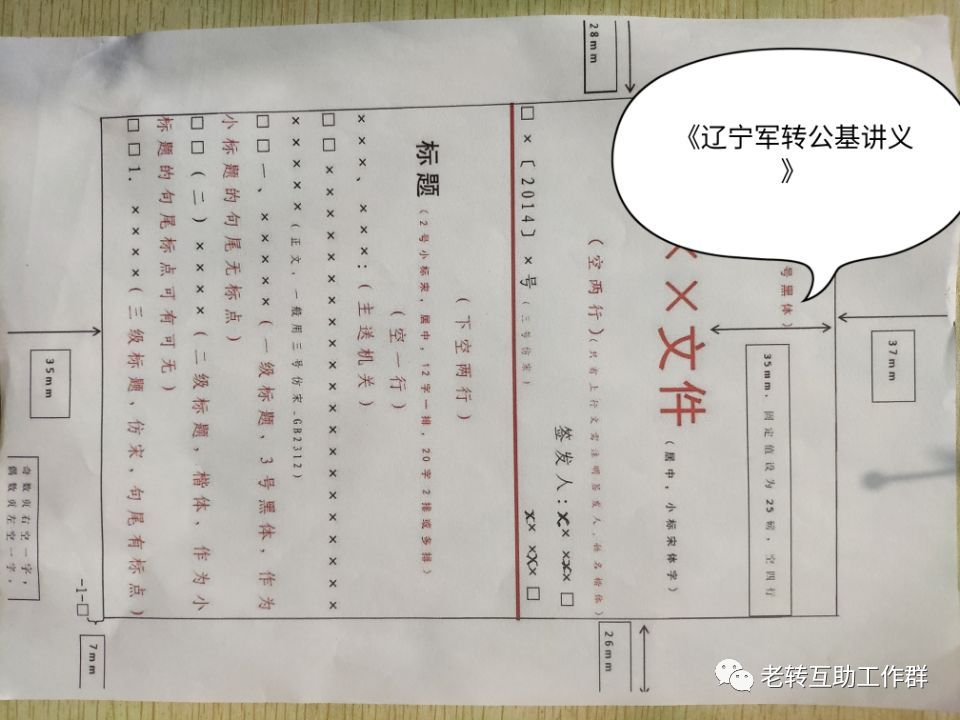 《辽宁军转公基讲义
》
37mm
28mm
号黑体）
35mm，固定值设为25磅，空四行
××文件
（居中，小标宋体字）
（空两行）（只有上行文需注明签发人，姓名楷体）
签发人：×× ×××□
□×〔2014〕×号（三号仿宋） ×× ×××□
（下空两行）
标题（2号小标宋，居中，12字一排，20字2排或多排）
（空一行）
×××、×××：（主送机关）
□□×××××××××××××××××
××××（正文，一般用三号仿宋_GB2312）
□□一、×××××（一级标题，3号黑体，作为
小标题的句尾无标点）
□□（二）××××（二级标题，楷体，作为小
标题的句尾标点可有可无）
□□1．××××（三级标题，仿宋，句尾有标点）
-1-□
奇数页右空一字，
偶数页左空一字，
35mm
26mm
7mm
老转互助工作群